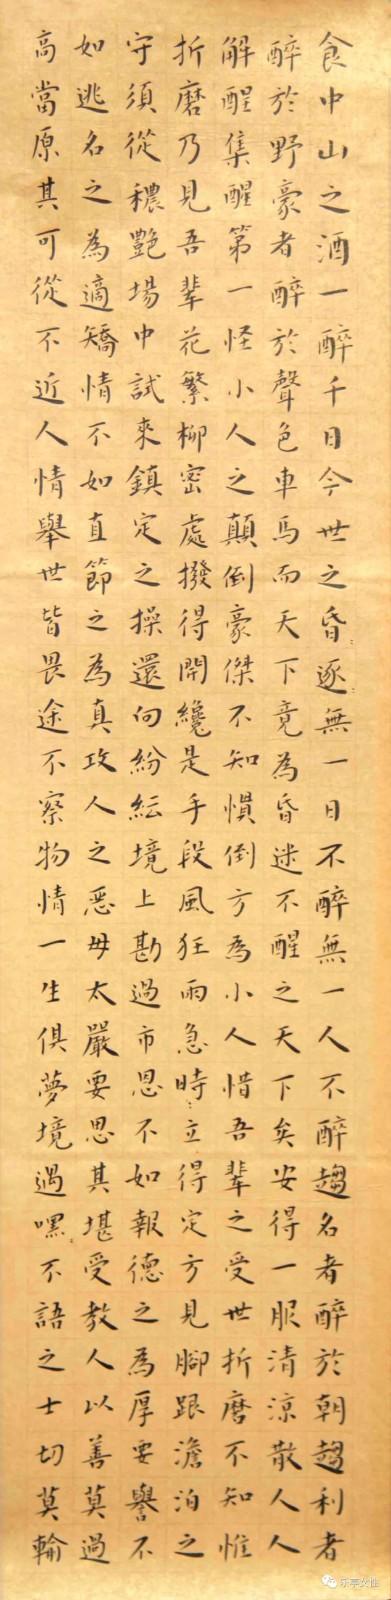 食中山之酒一醉千日今世之昏〻逐〻無一日不醉無一人不醉趨名者醉於朝趨利者
醉於野豪者醉於聲色車馬而天下竟為昏迷不醒之天下矣安得一服清涼散人人
解酲集醒第一怪小人之顛倒豪傑不知慣倒方為小人惜吾輩之受世折磨不知惟
折磨乃見吾輩花繁柳密處撥得開纔是手段風狂雨急時立得定方見腳跟澹泊之
守須從穠艷場中試來鎮定之操還向紛紜境上勘過市恩不如報德之為厚要譽不
如逃名之為適矯情不如直節之為真攻人之惡毋太嚴要思其堪受教人以善莫過
高當原其可從不近人情舉世皆畏途不察物情一生俱夢境過嘿〻不語之士切莫輸
乐亭女性